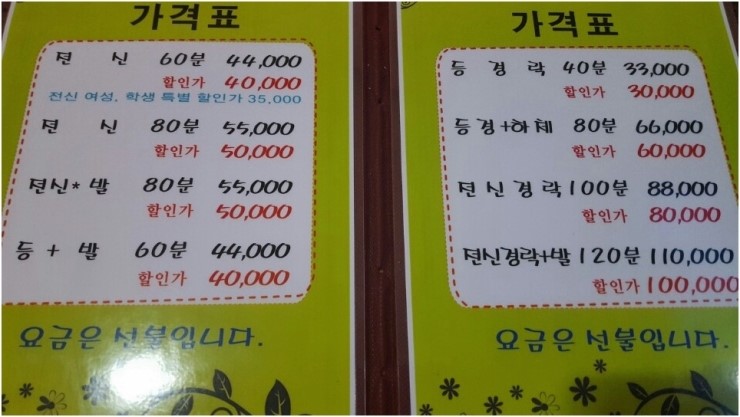 가격표
전 신 60분 44,000
할인가 40,000
전신 여성, 학생 특별 할인가 35,000
전 신 80분 55,000
할인가 50,000
전신* 발 80분 55,000
할인가 50,000
등 + 발 60분 44,000
할인가 40,000
요금은 선불입니다.
가격표
등 경 락 40분 33,000
할인가 30,000
등경+하체 80분 66,000
할인가 60,000
전신경락 100분 88,000
할인가 80,000
전신경락+발 120분 110,000
할인가 100,000
요금은 선불입니다.